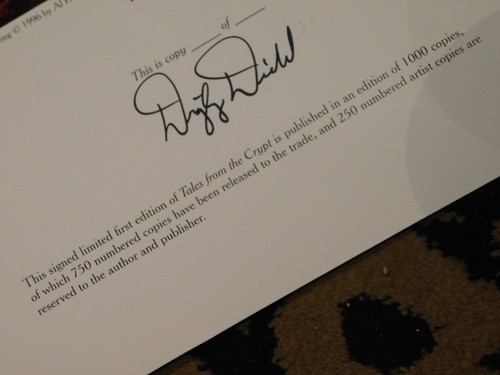 ing © 1996 by Al F
This is copy ____ of ____
Digby Diehl
This signed limited first edition of Tales from the Crypt is published in an edition of 1000 copies,
of which 750 numbered copies have been released to the trade, and 250 numbered artist copies are
reserved to the author and publisher.